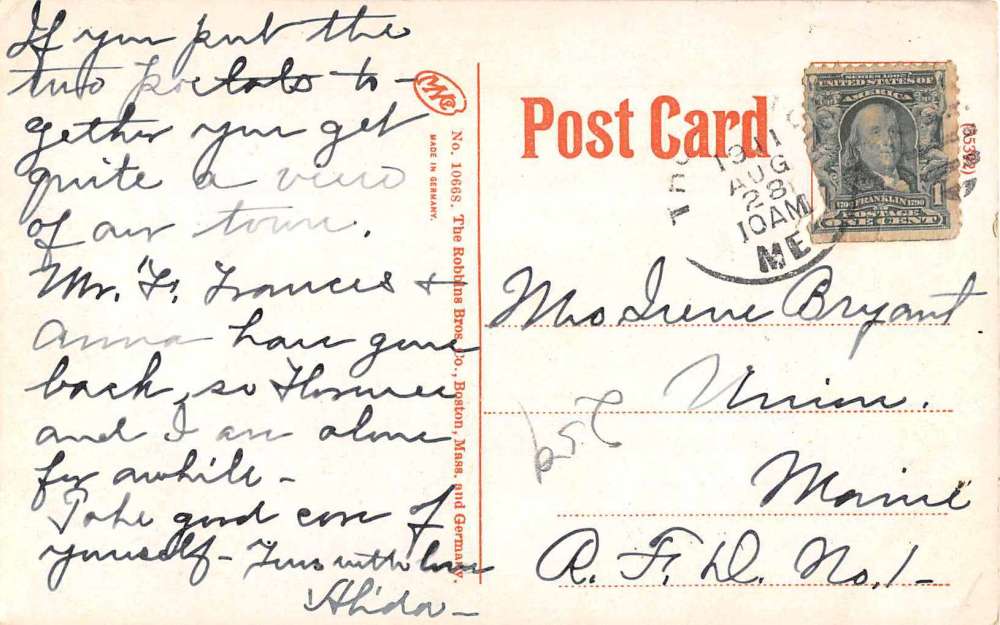 If you put the
two postals to-
gether you get
quite a view
of our town.
Mr. F. Frances &
Anna have gone
back, so Florence
and I are alone
for awhile -
Take good care of
yourself - Yours with love
Alida -
MADE IN GERMANY.
No. 10668. The Robbins Bros. Co., Boston, Mass. and Germany.
Post Card
1911
AUG
28
10 AM
ME
SERIES 1902
UNITED STATES OF
AMERICA
1706 FRANKLIN 1790
POSTAGE
ONE CENT
Mrs Irene Bryant
Union.
Maine
R. F. D. No. 1-